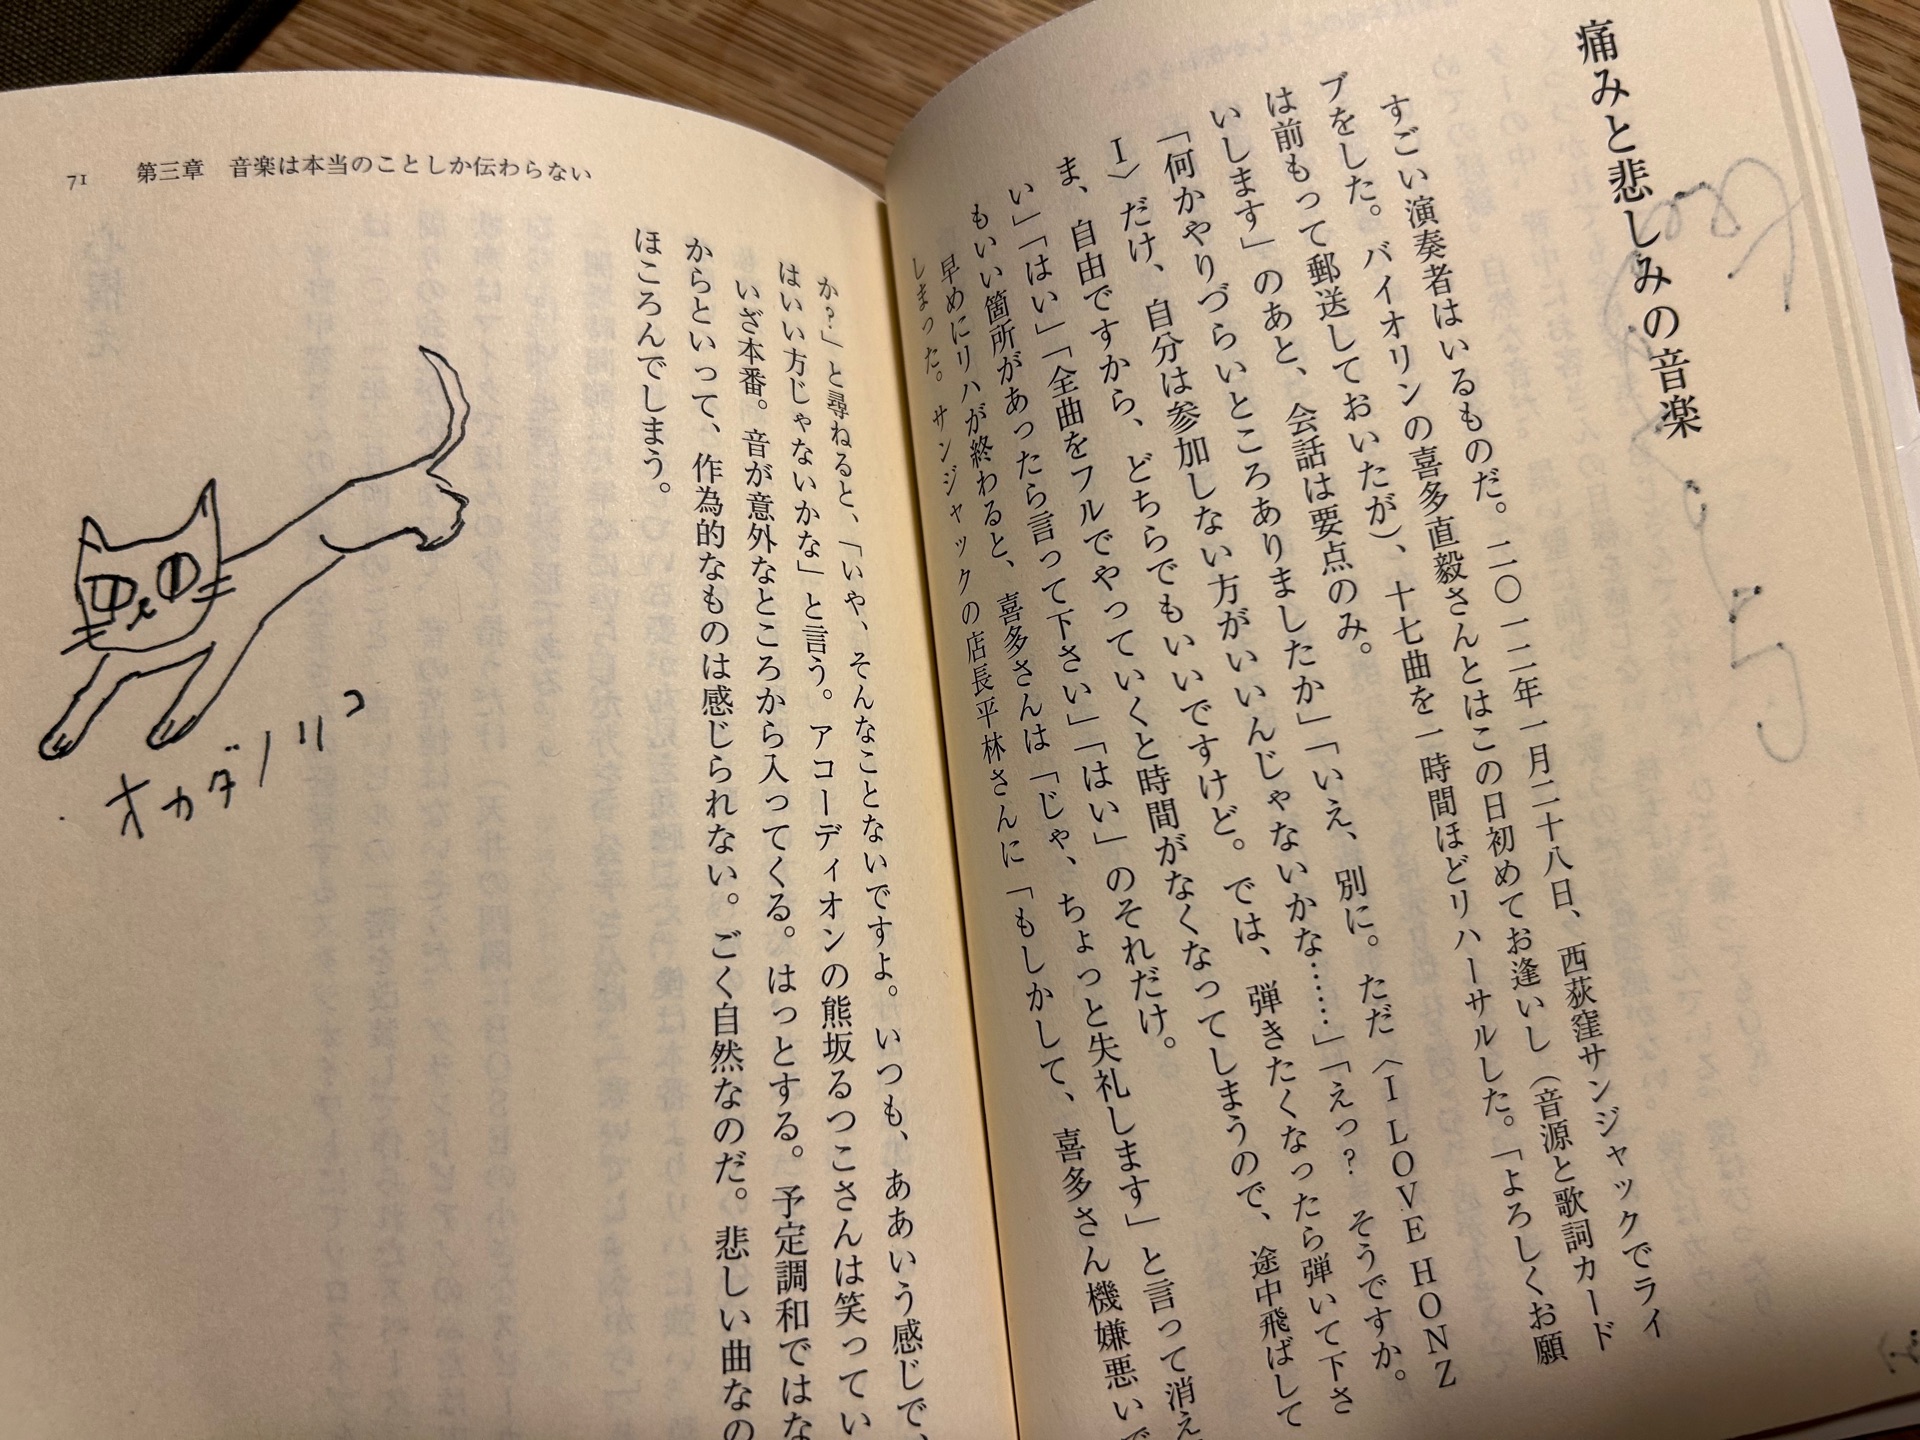 痛みと悲しみの音楽
すごい演奏者はいるものだ。二〇一二年一月二十八日、西荻窪サンジャックでライ
ブをした。バイオリンの喜多直毅さんとはこの日初めてお逢いし（音源と歌詞カード
は前もって郵送しておいたが）、十七曲を一時間ほどリハーサルした。「よろしくお願
いします」のあと、会話は要点のみ。
「何かやりづらいところありましたか」「いえ、別に。ただ〈I LOVE HONZ
I〉だけ、自分は参加しない方がいいんじゃないかな……」「えっ？ そうですか。
ま、自由ですから、どちらでもいいですけど。では、弾きたくなったら弾いて下さ
い」「はい」「全曲をフルでやっていくと時間がなくなってしまうので、途中飛ばして
もいい箇所があったら言って下さい」「はい」のそれだけ。
早めにリハが終わると、喜多さんは「じゃ、ちょっと失礼します」と言って消え
しまった。サンジャックの店長平林さんに「もしかして、喜多さん機嫌悪いで
71 第三章 音楽は本当のことしか伝わらない
か？」と尋ねると、「いや、そんなことないですよ。いつも、ああいう感じで、
はいい方じゃないかな」と言う。アコーディオンの熊坂るつこさんは笑ってい
いざ本番。音が意外なところから入ってくる。はっとする。予定調和ではな
からといって、作為的なものは感じられない。ごく自然なのだ。悲しい曲なの
ほころんでしまう。
オカダノリコ